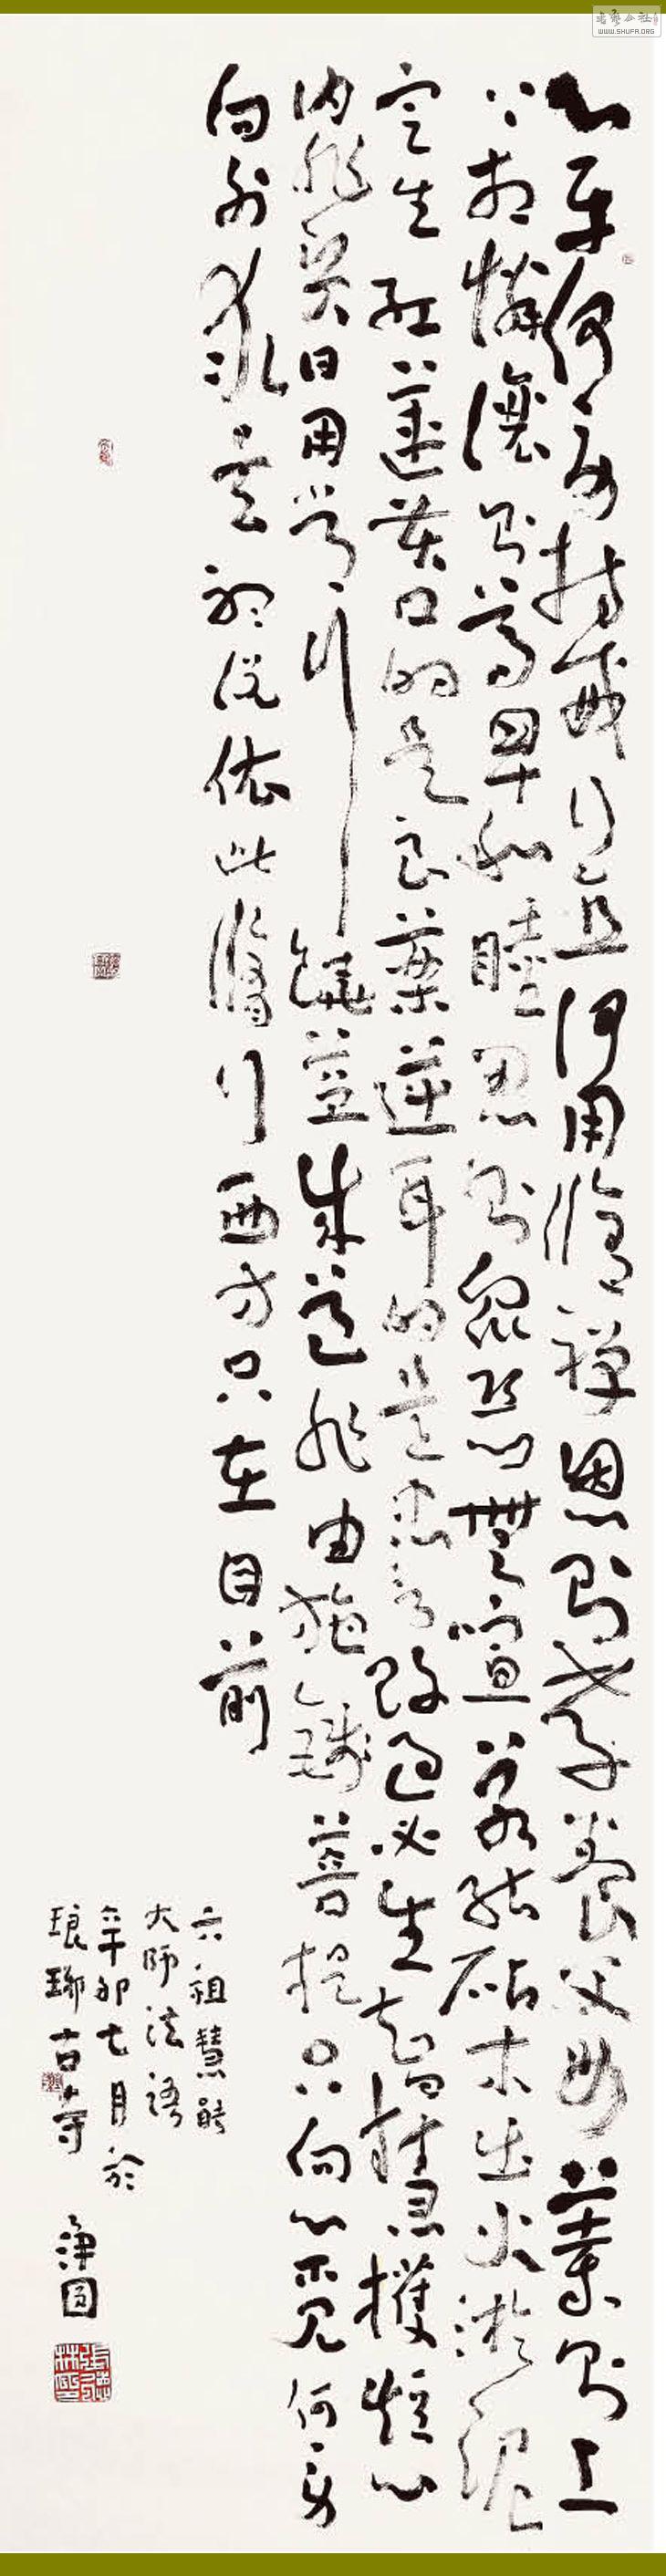 書法公社
WWW.SHUFA.ORG
心平何勞持戒行直何用修禪恩則孝養父母義則上
下相憐讓則尊卑和睦忍則眾惡無喧若能砧木出火淤泥
定生紅蓮苦口的是良藥逆耳的是忠言改過必生智慧護短心
內非賢日用常行饒益成道非由施錢菩提只向心覓何勞
向外求玄聽說依此修行西方只在目前
六祖慧能
大師法語
辛卯七月於
琅琊古寺 淨圓